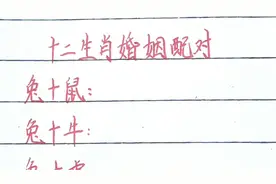 十二生肖婚姻配对
兔十鼠:
兔十牛: